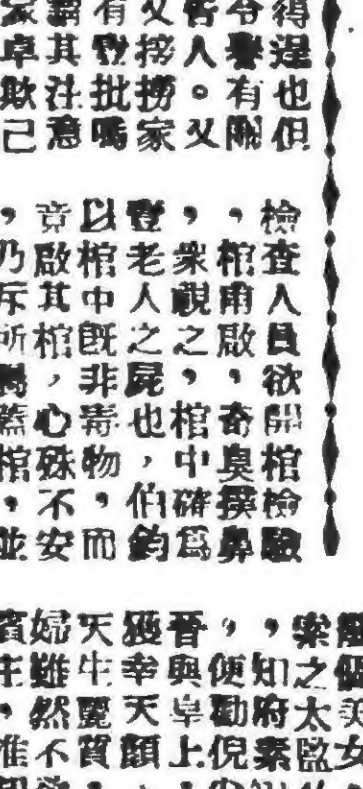 得涅也但
令譽有關
皆人。又
又搒撈家
有登批嗎
霸其注意
家卓欺己
檢查人員欲開棺檢驗
，棺甫啟，奇臭撲鼻
，衆觀之，棺中確爲
登老人之屍也，伯鈞
以棺中既非毒物，而
竟啟其棺，心殊不安
，乃斥所屬蓋棺，並
個美女
案之太監
，知府素
，便勸倪
晉與皐上
獲幸天顏
天生麗質
婦雖然不
賓主，惟